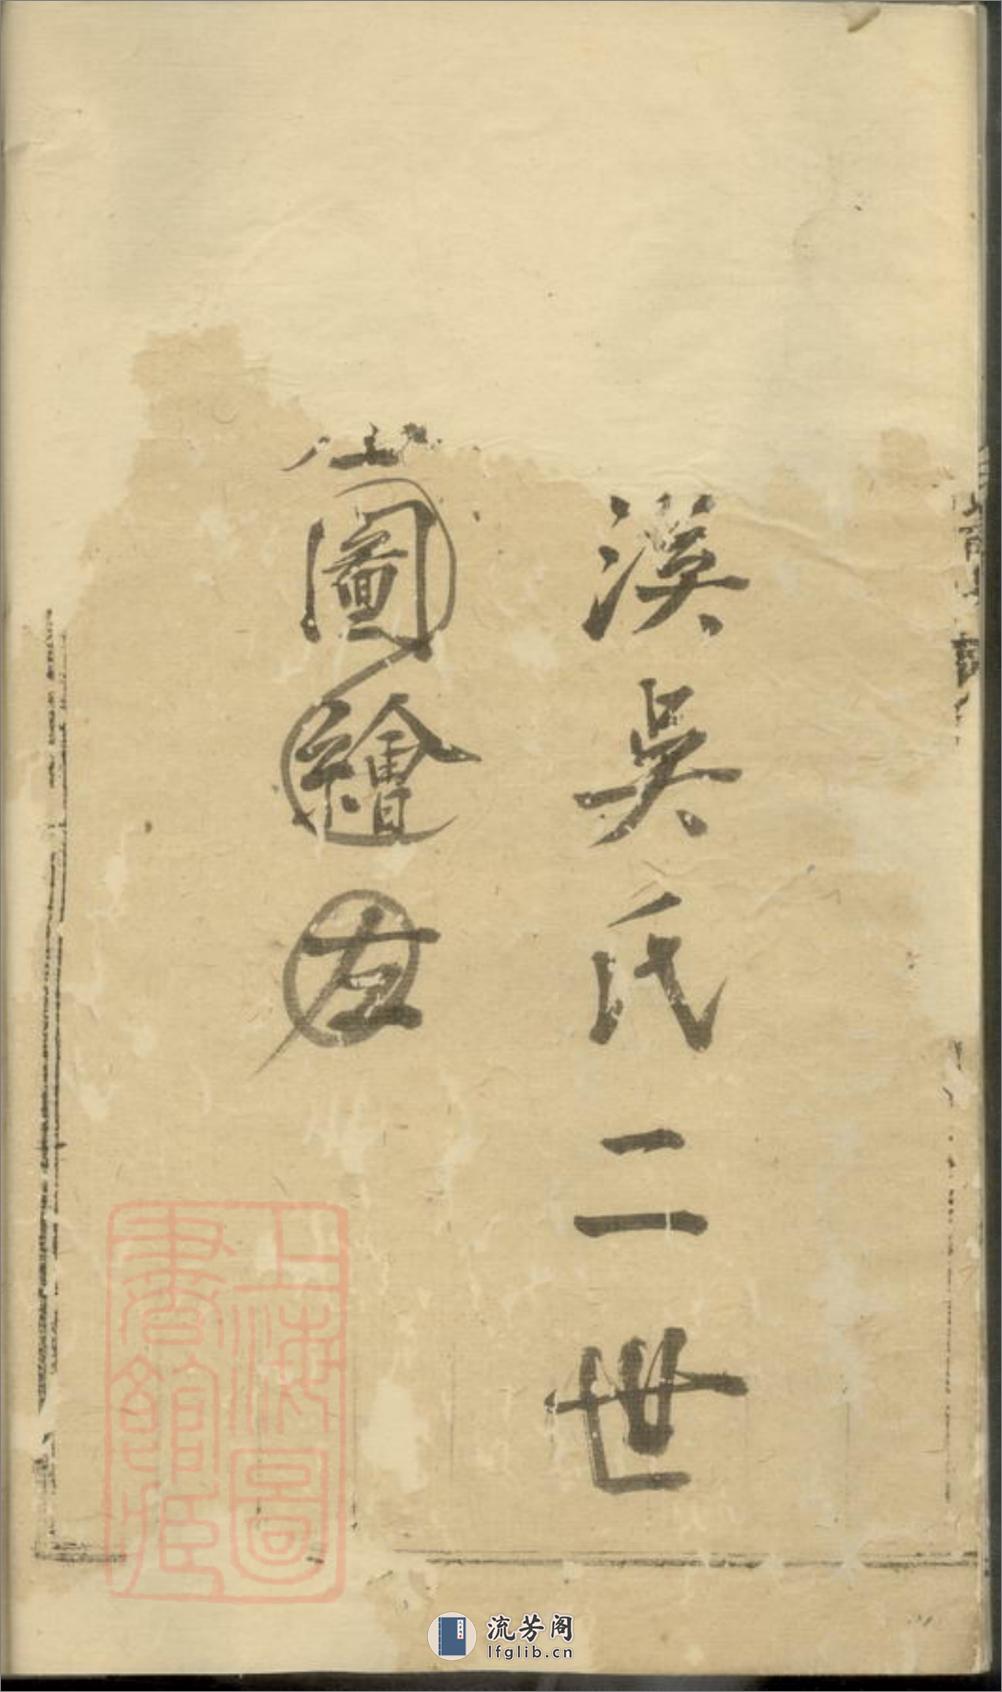 溪吳氏二世
圖繪左
上海圖
書館藏
流芳阁
lfglib.cn